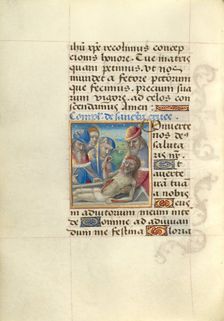 thū xp̄e recolimus concep
cionis honore. Et matris
quam petimus vt nos
mundet a fetore pctōrum
que fecimus. precium suo
rum vigore. ad celos con
scendamus Amen
de sancta cruce
Onuerte
nos de
saluta
ris nr̄.
Et a
uerte ira
tua a
nobis
in adiutorium meum inte
de Domine ad adiuuan
dum me festina Gloria